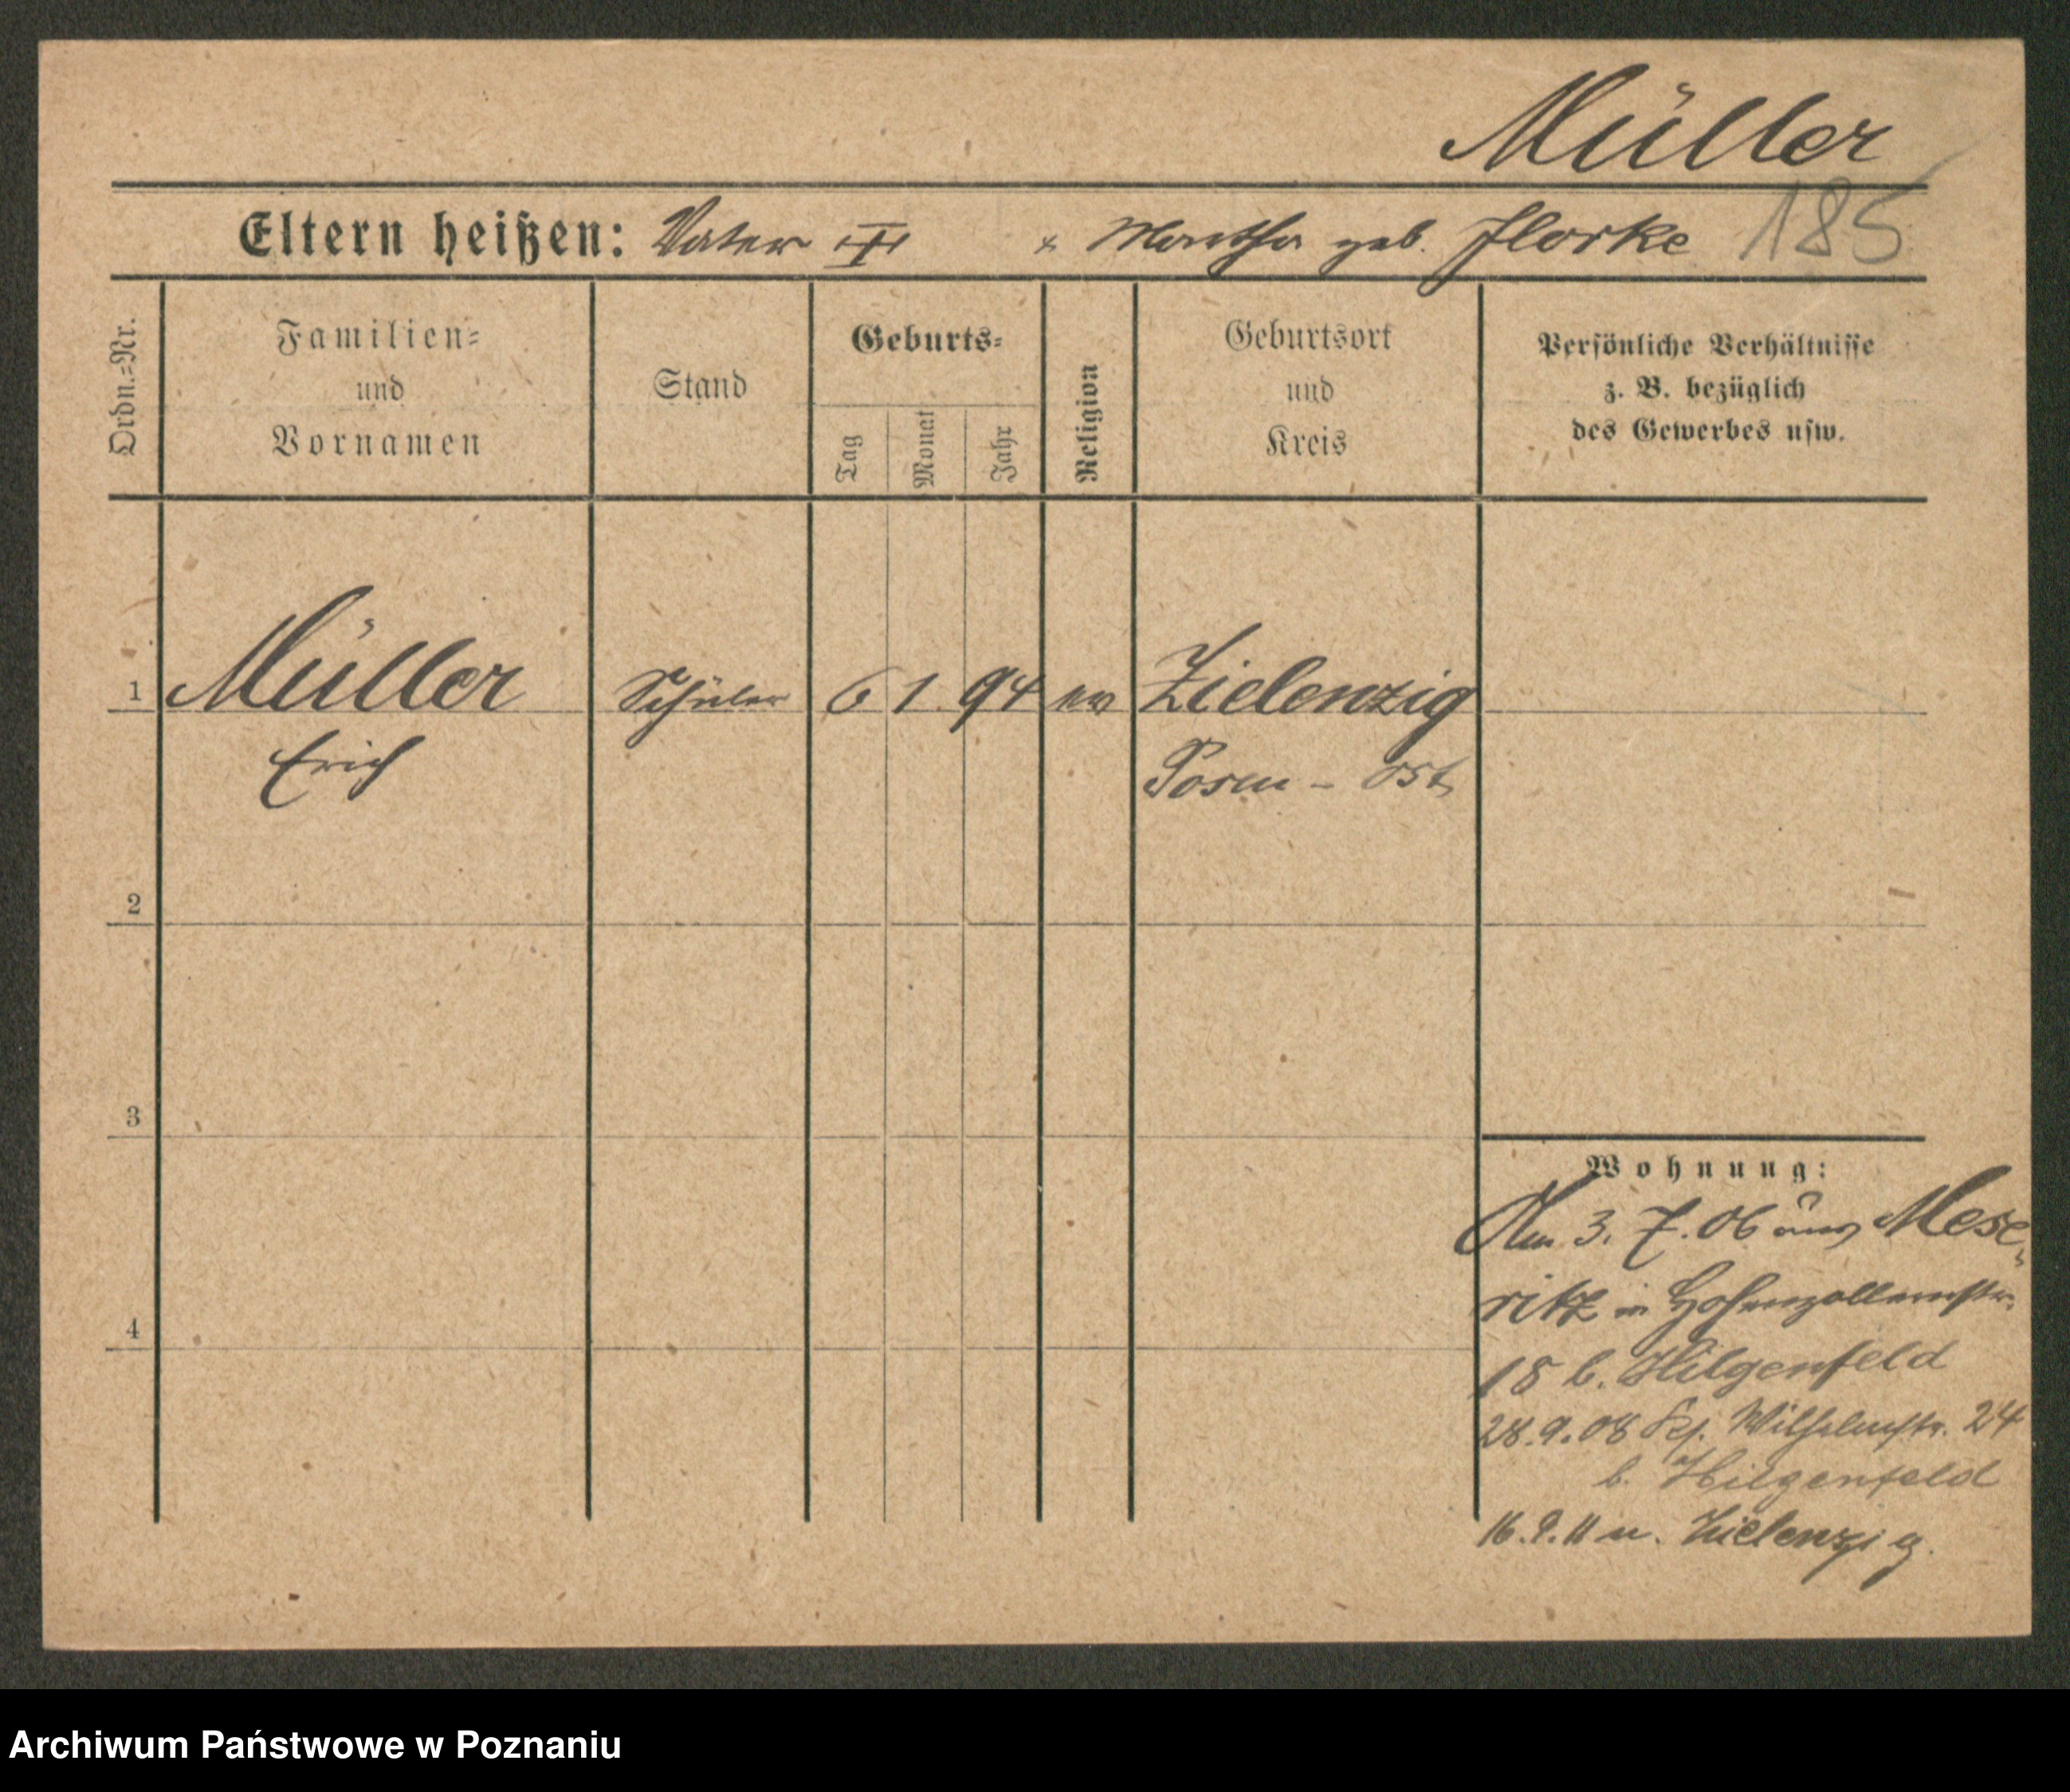 Müller
185
Eltern heißen: Vater & Martha geb. Florke
Ordn.=Nr.
Familien=
und
Vornamen
Stand
Geburts=
Tag
Monat
Jahr
Religion
Geburtsort
und
Kreis
Persönliche Verhältnisse
z. B. bezüglich
des Gewerbes usw.
1 Müller Schüler 6 1 94 ev Zielenzig
Erich Posen - Ost
2
3
4
Wohnung:
Am 3. 7. 06 aus Mese-
ritz in Hohenzollernstr.
18 b. Hilgenfeld
28. 9. 08 Wilhelmstr. 24
b. Hilgenfeld
16. 9. 11 n. Zielenzig.
Archiwum Państwowe w Poznaniu